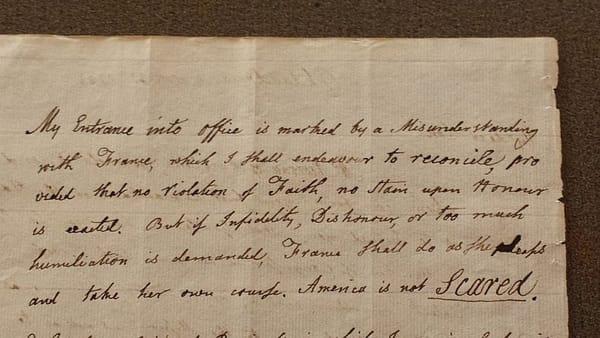 My Entrance into office is marked by a Misunderstanding
with France, which I shall endeavour to reconcile, pro
vided that no Violation of Faith, no Stain upon Honour
is exacted. But if Infidelity, Dishonour, or too much
humiliation is demanded, France shall do as she pleases
and take her own course. America is not Scared.